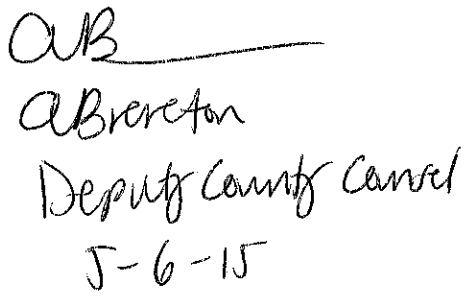 aB
aBrereton
Deputy County Counsel
5-6-15